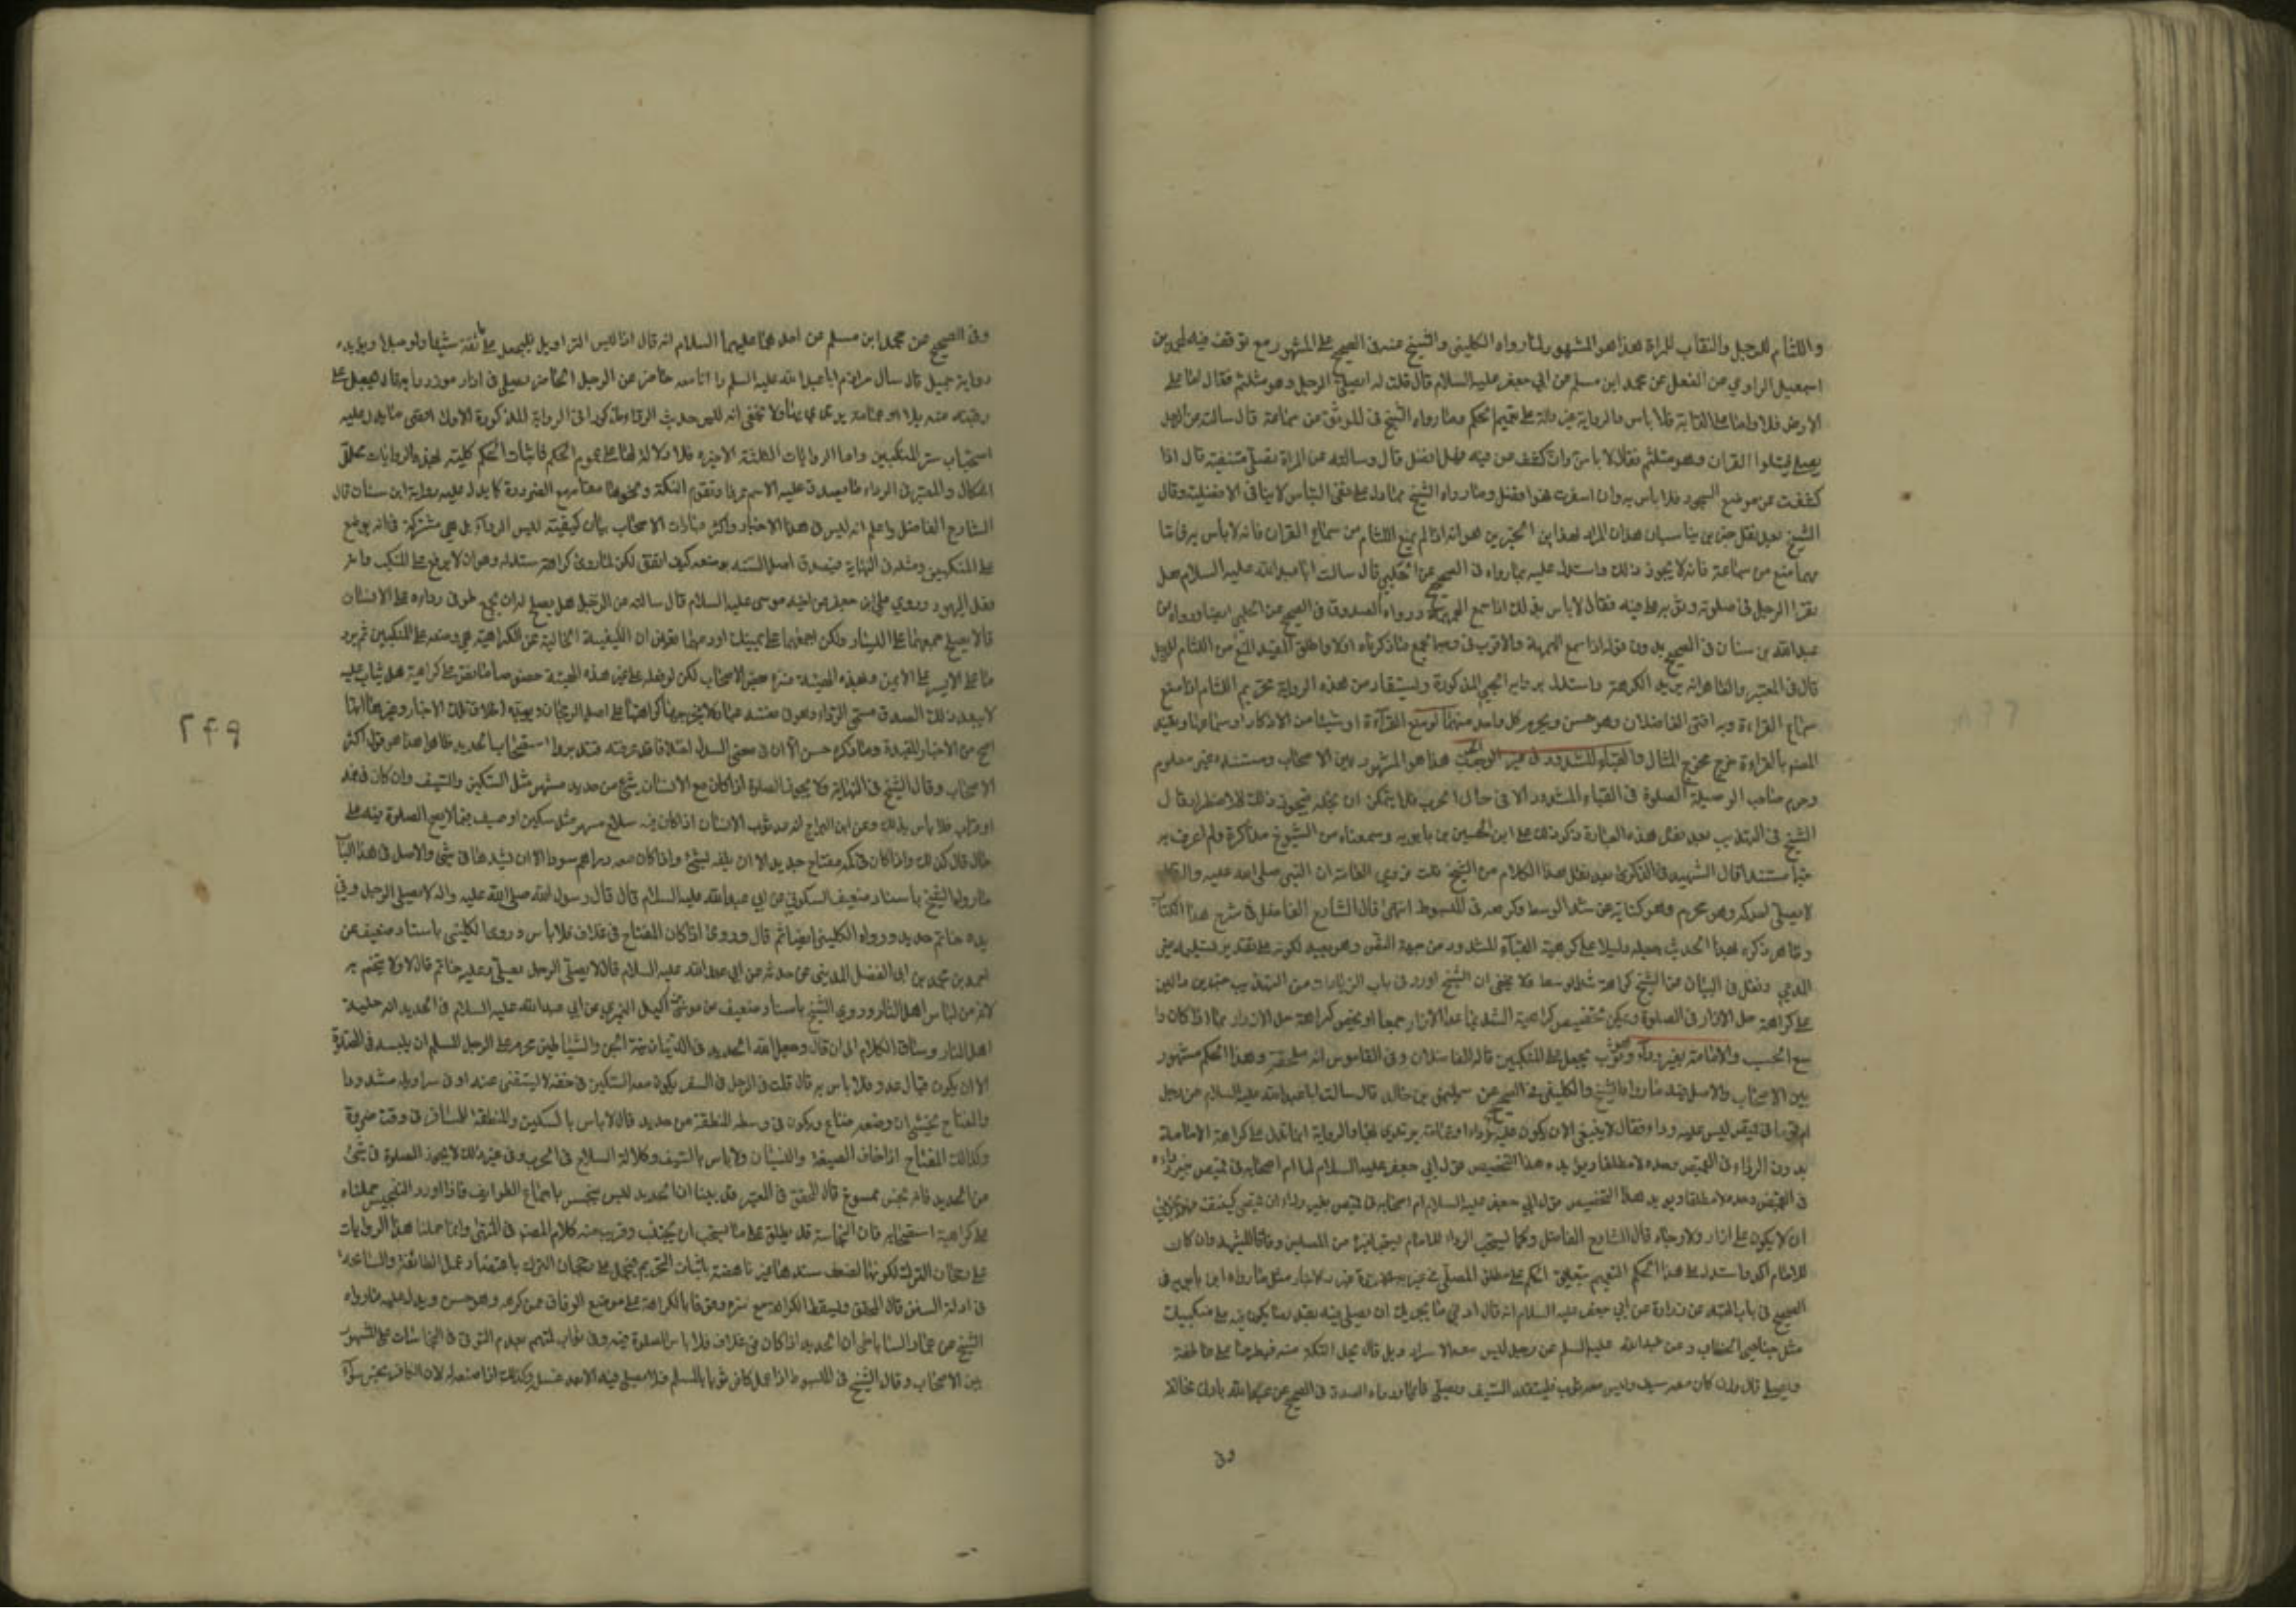 واللثام للرجل والنقاب للمراة هذا هو المشهور لما رواه الكليني والشيخ عنه في الصحيح على المشهور مع توقف فيه لمحمد بن
اسمعيل الراوي عن الفضل عن محمد ابن مسلم عن ابي جعفر عليه السلام قال قلت له ايصلي الرجل وهو متلثم فقال اما على
الارض فلا واما على الدابة فلا باس والرواية غير دالة على تعميم الحكم وما رواه الشيخ في الموثق عن سماعة قال سالته عن الرجل
يصلي فيتلوا القران وهو متلثم فقال لا باس وان كشف عن فيه فهو افضل قال وسالته عن المراة تصلي متنقبة قال اذا
كشفت عن موضع السجود فلا باس به وان اسفرت فهو افضل وما رواه الشيخ مما دل على نفي الباس لا ينافي الافضلية وقال
الشيخ بعد نقل خبرين يناسبان هذا المراد لهذا ابن الخبرين هو انه اذا لم يمنع اللثام من سماع القران فانه لا باس به فاما
مهما منع من سماعة فانه لا يجوز ذلك واستدل عليه بما رواه في الصحيح عن الحلبي قال سالت ابا عبدالله عليه السلام هل
يقرا الرجل في صلوته وثوبه على فيه فقال لا باس بذلك اذا سمع الهمهمة ورواه الصدوق في الصحيح عن الحلبي ايضا ورواه ابن
عبدالله بن سنان في الصحيح بدون قوله اذا سمع الهمهمة والاقرب في وجه الجمع ما ذكرناه اولا واطلق المفيد المنع من اللثام للرجل
قال في المعتبر والظاهر انه يريد الكرهة واستدل برواية الحلبي المذكورة ويستفاد من هذه الرواية تحريم اللثام اذا منع
سماع القراءة وبه افتى الفاضلان وهو حسن ويحرم كل واحد منهما لو منع القراءة او شيئا من الاذكار او سماعها وتقييد
المصنف بالقراءة خرج مخرج المثال والقباء المشدود في غير الحرب هذا هو المشهور بين الاصحاب ومستنده غير معلوم
وحرم صاحب الوسيلة الصلوة في القباء المشدود الا في حال الحرب فلا يتمكن ان يحله فيجوز ذلك للاضطرار قال
الشيخ في التهذيب بعد نقل هذه العبارة ذكر ذلك علي ابن الحسين بن بابويه وسمعناه من الشيوخ مذاكرة ولم اعرف به
خبرا مستندا قال الشهيد في الذكرى بعد نقل هذا الكلام من الشيخ قلت قد روي العامة ان النبي صلى الله عليه واله قال
لا يصلي احدكم وهو محرم وهو كناية عن شد الوسط وكرهه في المبسوط انتهى قال الشارح الفاضل في شرح هذا الكتاب
وظاهر ذكره لهذا الحديث جعله دليلا على كراهة القباء المشدود من جهة النص وهو بعيد لكونه على تقدير تسليمه غير
المدعي ونقل في البيان عن الشيخ كراهة شد الوسط ولا يخفى ان الشيخ اورد في باب الزيادات من التهذيب خبرين دالين
على كراهة حل الازار في الصلوة ويمكن تخصيص كراهية الشد بما عدا الازار جمعا او يخص كراهة حل الازرار بما اذا كان وا
سع الجيب والامامة بغير رداء وثوب يجعل على المنكبين قاله الفاضلان وفي القاموس انه ملحفة وهذا الحكم مشهور
بين الاصحاب والاصل فيه ما رواه الشيخ والكليني في الصحيح عن سليمان بن خالد قال سالت ابا عبدالله عليه السلام عن رجل
ام قوما في قميص ليس عليه رداء فقال لا ينبغي الا ان يكون عليه رداء او عمامة يرتدي بها والرواية انما تدل على كراهة الامامة
بدون الرداء في القميص وحده لا مطلقا ويؤيده هذا التخصيص قول ابي جعفر عليه السلام لما ام اصحابه في قميص بغير رداء
في القميص وحده لا مطلقا ويؤيد هذا التخصيص قول ابي جعفر عليه السلام ام اصحابه في قميص بغير رداء ان قميصي كثيف فهو يجزي
ان لا يكون علي ازار ولا رداء قال الشارح الفاضل وكما يستحب الرداء للامام يستحب لغيره من المصلين وفاقا للشهيد وان كان
للامام اكد واستدل على هذا الحكم التعميم بتعليق الحكم على مطلق المصلي في عدة اخبار مثل ما رواه ابن بابويه في
الصحيح في باب القبلة عن زرارة عن ابي جعفر عليه السلام انه قال ادنى ما يجزيك ان تصلي فيه بقدر ما يكون على منكبيك
مثل جناحي الخطاف وعن عبدالله عليه السلم عن رجل ليس معه الا سراويل قال يحل التكة منه فيطرحها على عاتقه
ويصلي قال وان كان معه سيف وليس معه ثوب فليتقلد السيف ويصلي قائما ورواه الصدوق في الصحيح عن عبدالله بادنى مخالفة
وفي
وفي الصحيح عن محمد ابن مسلم عن احدهما عليهما السلام انه قال اذا لبس السراويل فليجعل على عاتقه شيئا ولو حبلا ويؤيده
رواية جميل قال سال مرازم ابا عبدالله عليه السلم وانا معه حاضر عن الرجل الحاضر يصلي في ازار موتزرا به قال يجعل على
رقبته منديلا او عمامة يرتدي بها ولا يخفى انه ليس حديث الرداء مذكورا في الرواية المذكورة الاولى اقصى ما يدل عليه
استحباب ستر المنكبين واما الروايات الثلثة الاخيرة فلا دلالة لها على عموم الحكم فاثبات الحكم كليته لهذه الروايات محلق
اشكال والمعتبر في الرداء ما يصدق عليه الاسم عرفا وتقوم التكة ونحوها مقامه مع الضرورة كما يدل عليه رواية ابن سنان قال
الشارح الفاضل واعلم انه ليس في هذا الاخبار واكثر عبارات الاصحاب بيان كيفية لبس الرداء بل هي مشتركة في انه يوضع
على المنكبين ومثله في النهاية فيصدق اصل السنة بوضعه كيف اتفق لكن لما روي كراهة سدله وهو ان لا يرفع على المنكب وانه
فعل اليهود وروي علي بن جعفر عن اخيه موسى عليه السلام قال سالته عن الرجل هل يصلح له ان يجمع طرفي رداءه على الانسان
قال لا يصلح جمعهما على اليسار ولكن اجمعهما على يمينك او دعهما تعين ان الكيفية الخالية عن الكراهة هي وضعه على المنكبين ثم يرد
ما على الايسر على الايمن وبهذه الهيئة فسره بعض الاصحاب لكن لو فعله على غير هذه الهيئة خصوصا ما نص على كراهته هل يثاب عليه
لا يبعد ذلك لصدق مسمى الرداء وهو في نفسه عبادة لا يخرجها كراهتها على اصل الرجحان ويؤيده اطلاق تلك الاخبار وغيرها انها
اصح من الاخبار المقيدة وما ذكره حسن الا ان في معنى السدل اختلافا قد عرفته فتدبر واستصحاب الحديد ظاهرا هذا هو قول اكثر
الاصحاب وقال الشيخ في النهاية ولا يجوز الصلوة اذا كان مع الانسان شئ من حديد مشهر مثل السكين والسيف وان كان في غمد
او قراب فلا باس بذلك وعن ابن البراج انه عد ثوب الانسان اذا كان فيه سلاح مشهر مثل سكين او سيف مما لا يصح الصلوة فيه على
حال قال كذلك واذا كان في كمه مفتاح حديد الا ان يلفه بشئ واذا كان معه دراهم سود الا ان يشدها في شئ والاصل في هذا الباب
ما رواه الشيخ باسناد ضعيف السكوني عن ابي عبدالله عليه السلام قال قال رسول الله صلى الله عليه واله لا يصلي الرجل وفي
يده خاتم حديد ورواه الكليني ايضا ثم قال وروي اذا كان المفتاح في غلاف فلا باس وروى الكليني باسناد ضعيف عن
احمد بن محمد بن ابي الفضل المدايني عمن حدثه عن ابي عبدالله عليه السلام قال لا يصلي الرجل يصلي وعليه خاتم قال لا ولا يتختم به
لانه من لباس اهل النار وروى الشيخ باسناد ضعيف عن موسى بن اكيل النميري عن ابي عبدالله عليه السلام في الحديد انه حلية
اهل النار وساق الكلام الى ان قال وجعل الله الحديد في الدنيا زينة الجن والشياطين فحرم على الرجل المسلم ان يلبسه في الصلوة
الا ان يكون قتال عدو فلا باس به قال قلت في الرجل في السفر يكون معه السكين في خفه لا يستغني عنه او في سراويله مشدودا
والمفتاح يخشى ان وضعه ضاع ويكون في وسطه المنطقة من حديد قال لا باس بالسكين والمنطقة للمسافر في وقت ضرورة
وكذلك المفتاح اذا خاف الضيعة والنسيان ولا باس بالسيف وكل الة السلاح في الحرب وفي غير ذلك لا يجوز الصلوة في شئ
من الحديد فانه نجس ممسوخ قال المحقق في المعتبر قد بينا ان الحديد ليس بنجس باجماع الطوايف فاذا اورد التنجيس حملناه
على كراهية استصحابه فان النجاسة قد يطلق على ما يستحب ان يجتنب وقريب منه كلام المصنف في المنتهى وانما حملنا هذه الروايات
على رجحان الترك لكونها لضعف سندها غير ناهضة باثبات التحريم فتحمل على رجحان الترك باعتضاد عمل الطائفة والمسامحة
في ادلة السنن قال المحقق ويسقط الكراهة مع ستره وقوفا بالكراهة على موضع الوفاق ممن كرهه وهو حسن ويدل عليه ما رواه
الشيخ عن عمار الساباطي ان الحديد اذا كان في غلاف فلا باس بالصلوة فيه وفي ثياب المتهم بعدم التوقي في النجاسات على المشهور
بين الاصحاب وقال الشيخ في المبسوط اذا عمل كافر ثوبا بالمسلم فلا يصلي فيه الا بعد غسله وكذلك اذا صبغه لان الكافر نجس سواء
٢٤٩